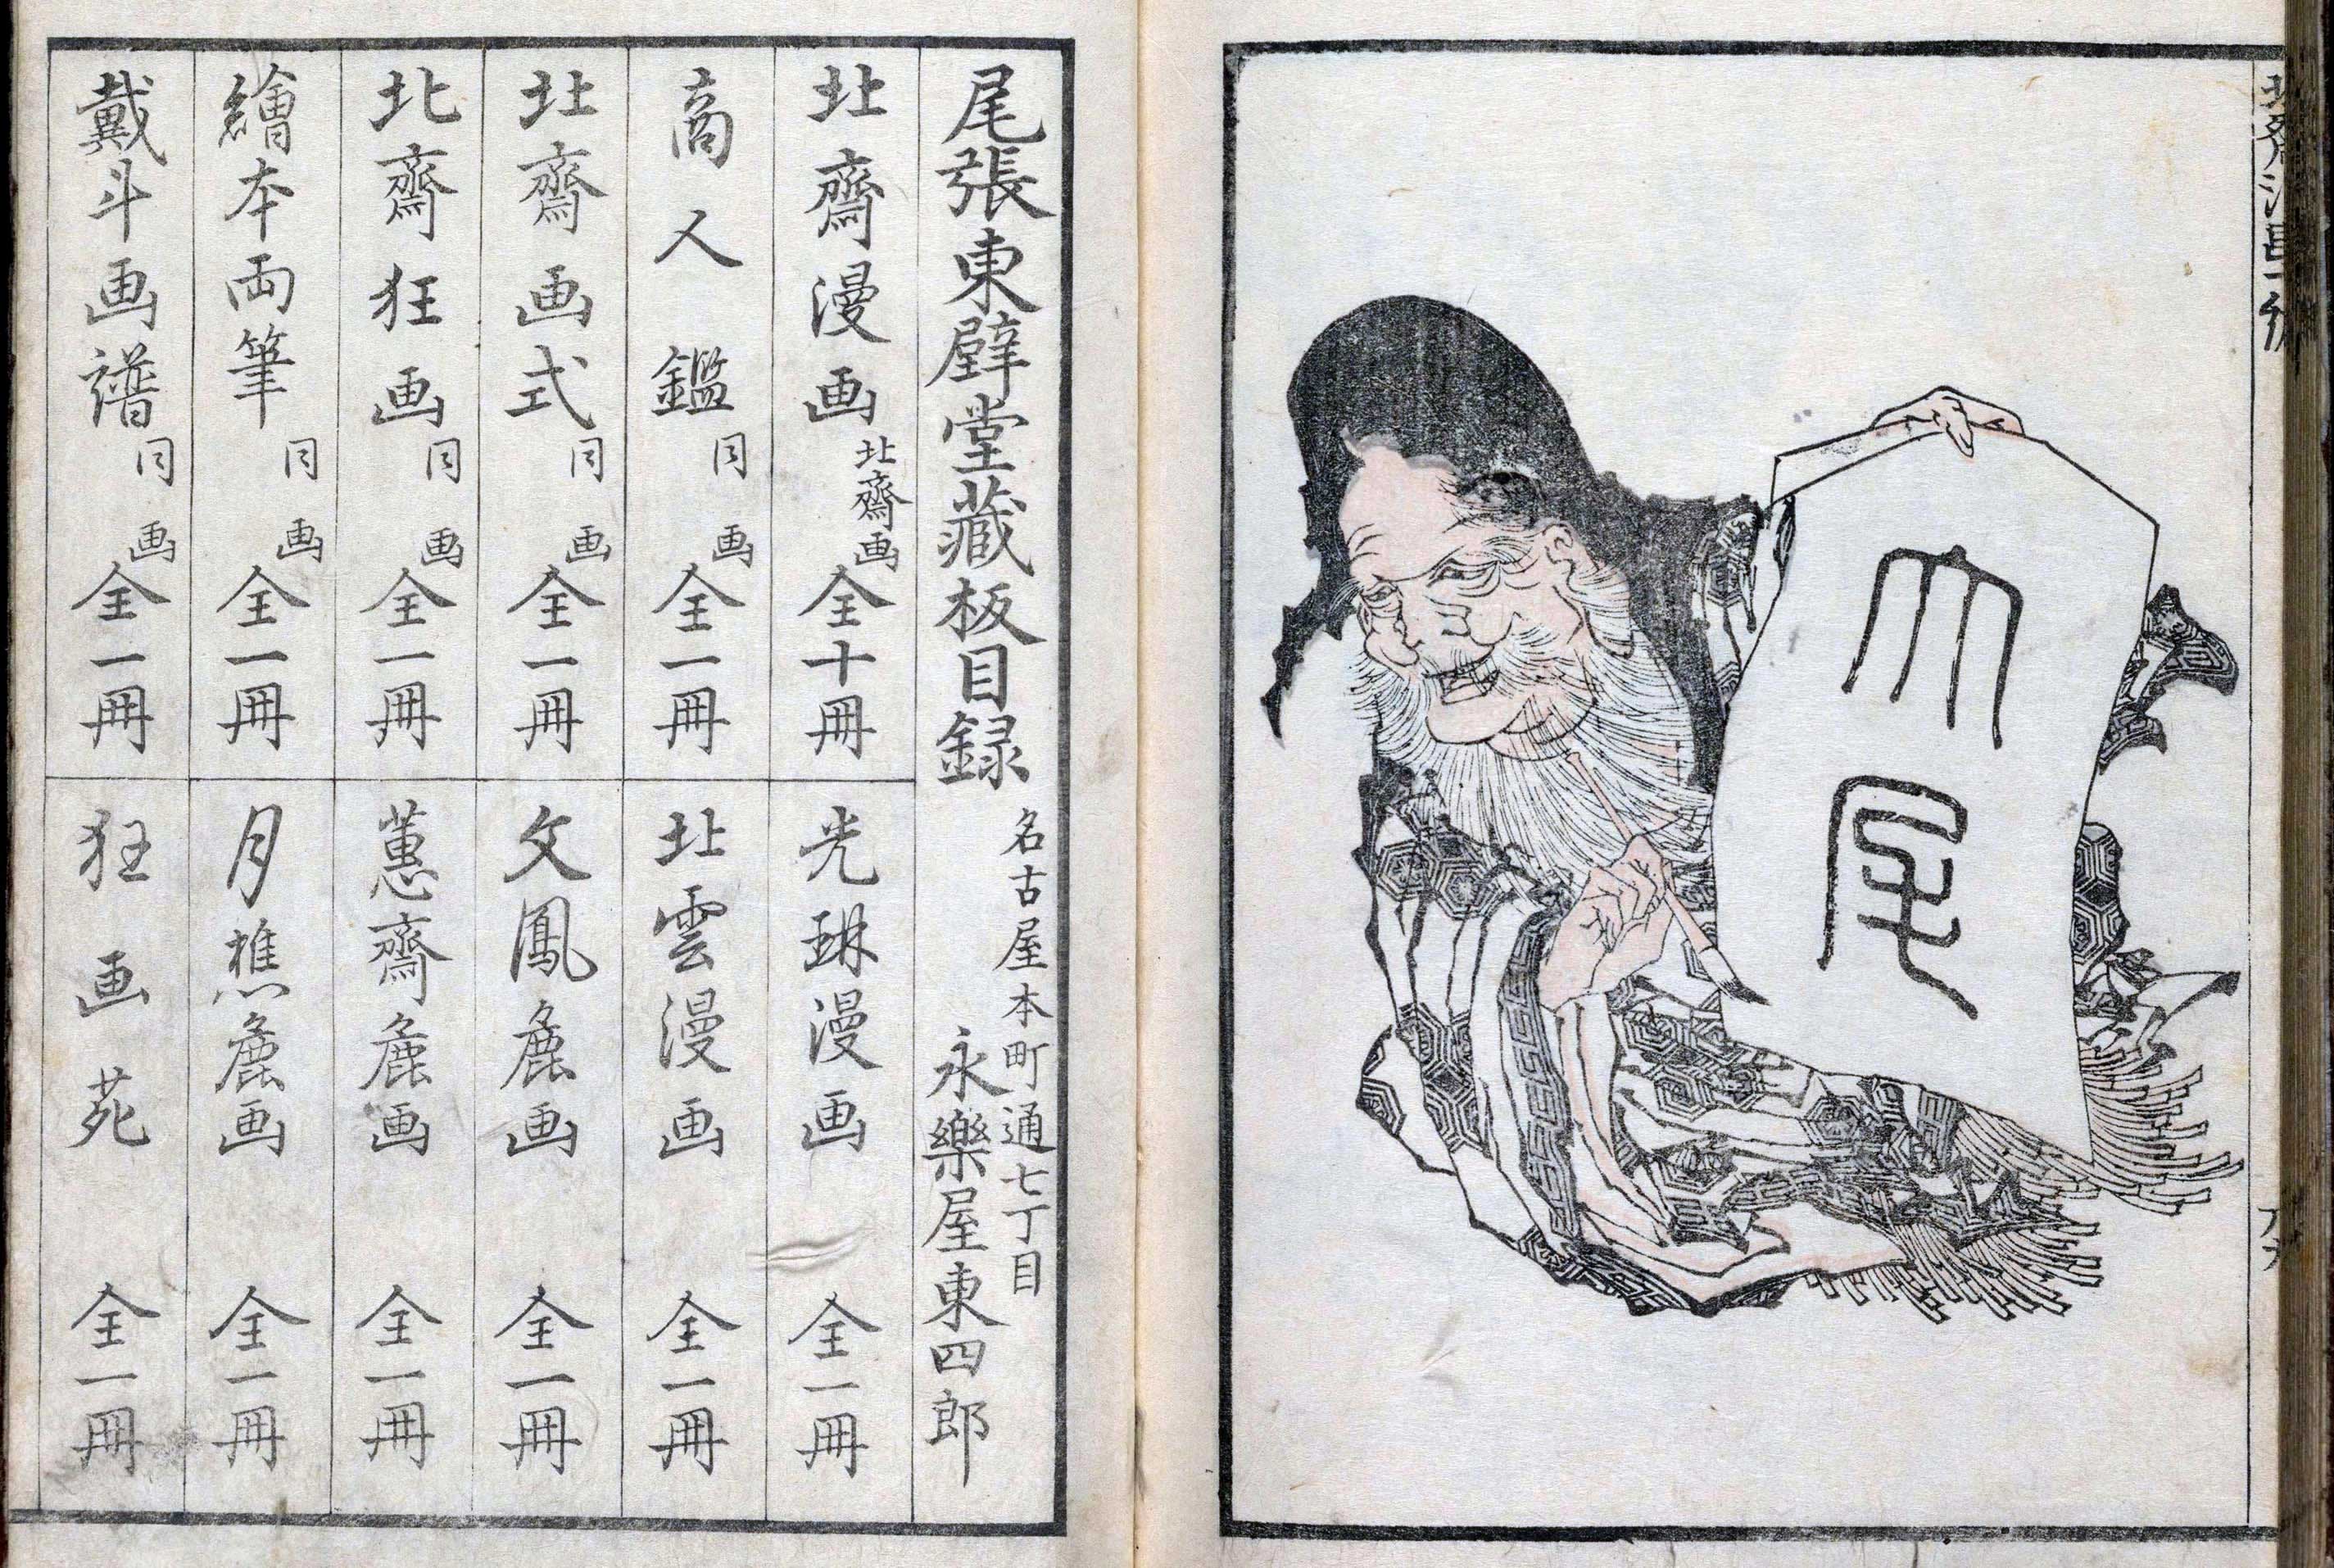 大尾
尾張東壁堂藏板目録
名古屋本町通七丁目
永樂屋東四郎
北齋漫画 北齋画 全十冊
商人鑑 同画 全一冊
北齋画式 同画 全一冊
北齋狂画 同画 全一冊
繪本両筆 同画 全一冊
戴斗画譜 同画 全一冊
光琳漫画 全一冊
北雲漫画 全一冊
文鳳麁画 全一冊
蕙齋麁画 全一冊
月樵麁画 全一冊
狂画苑 全一冊